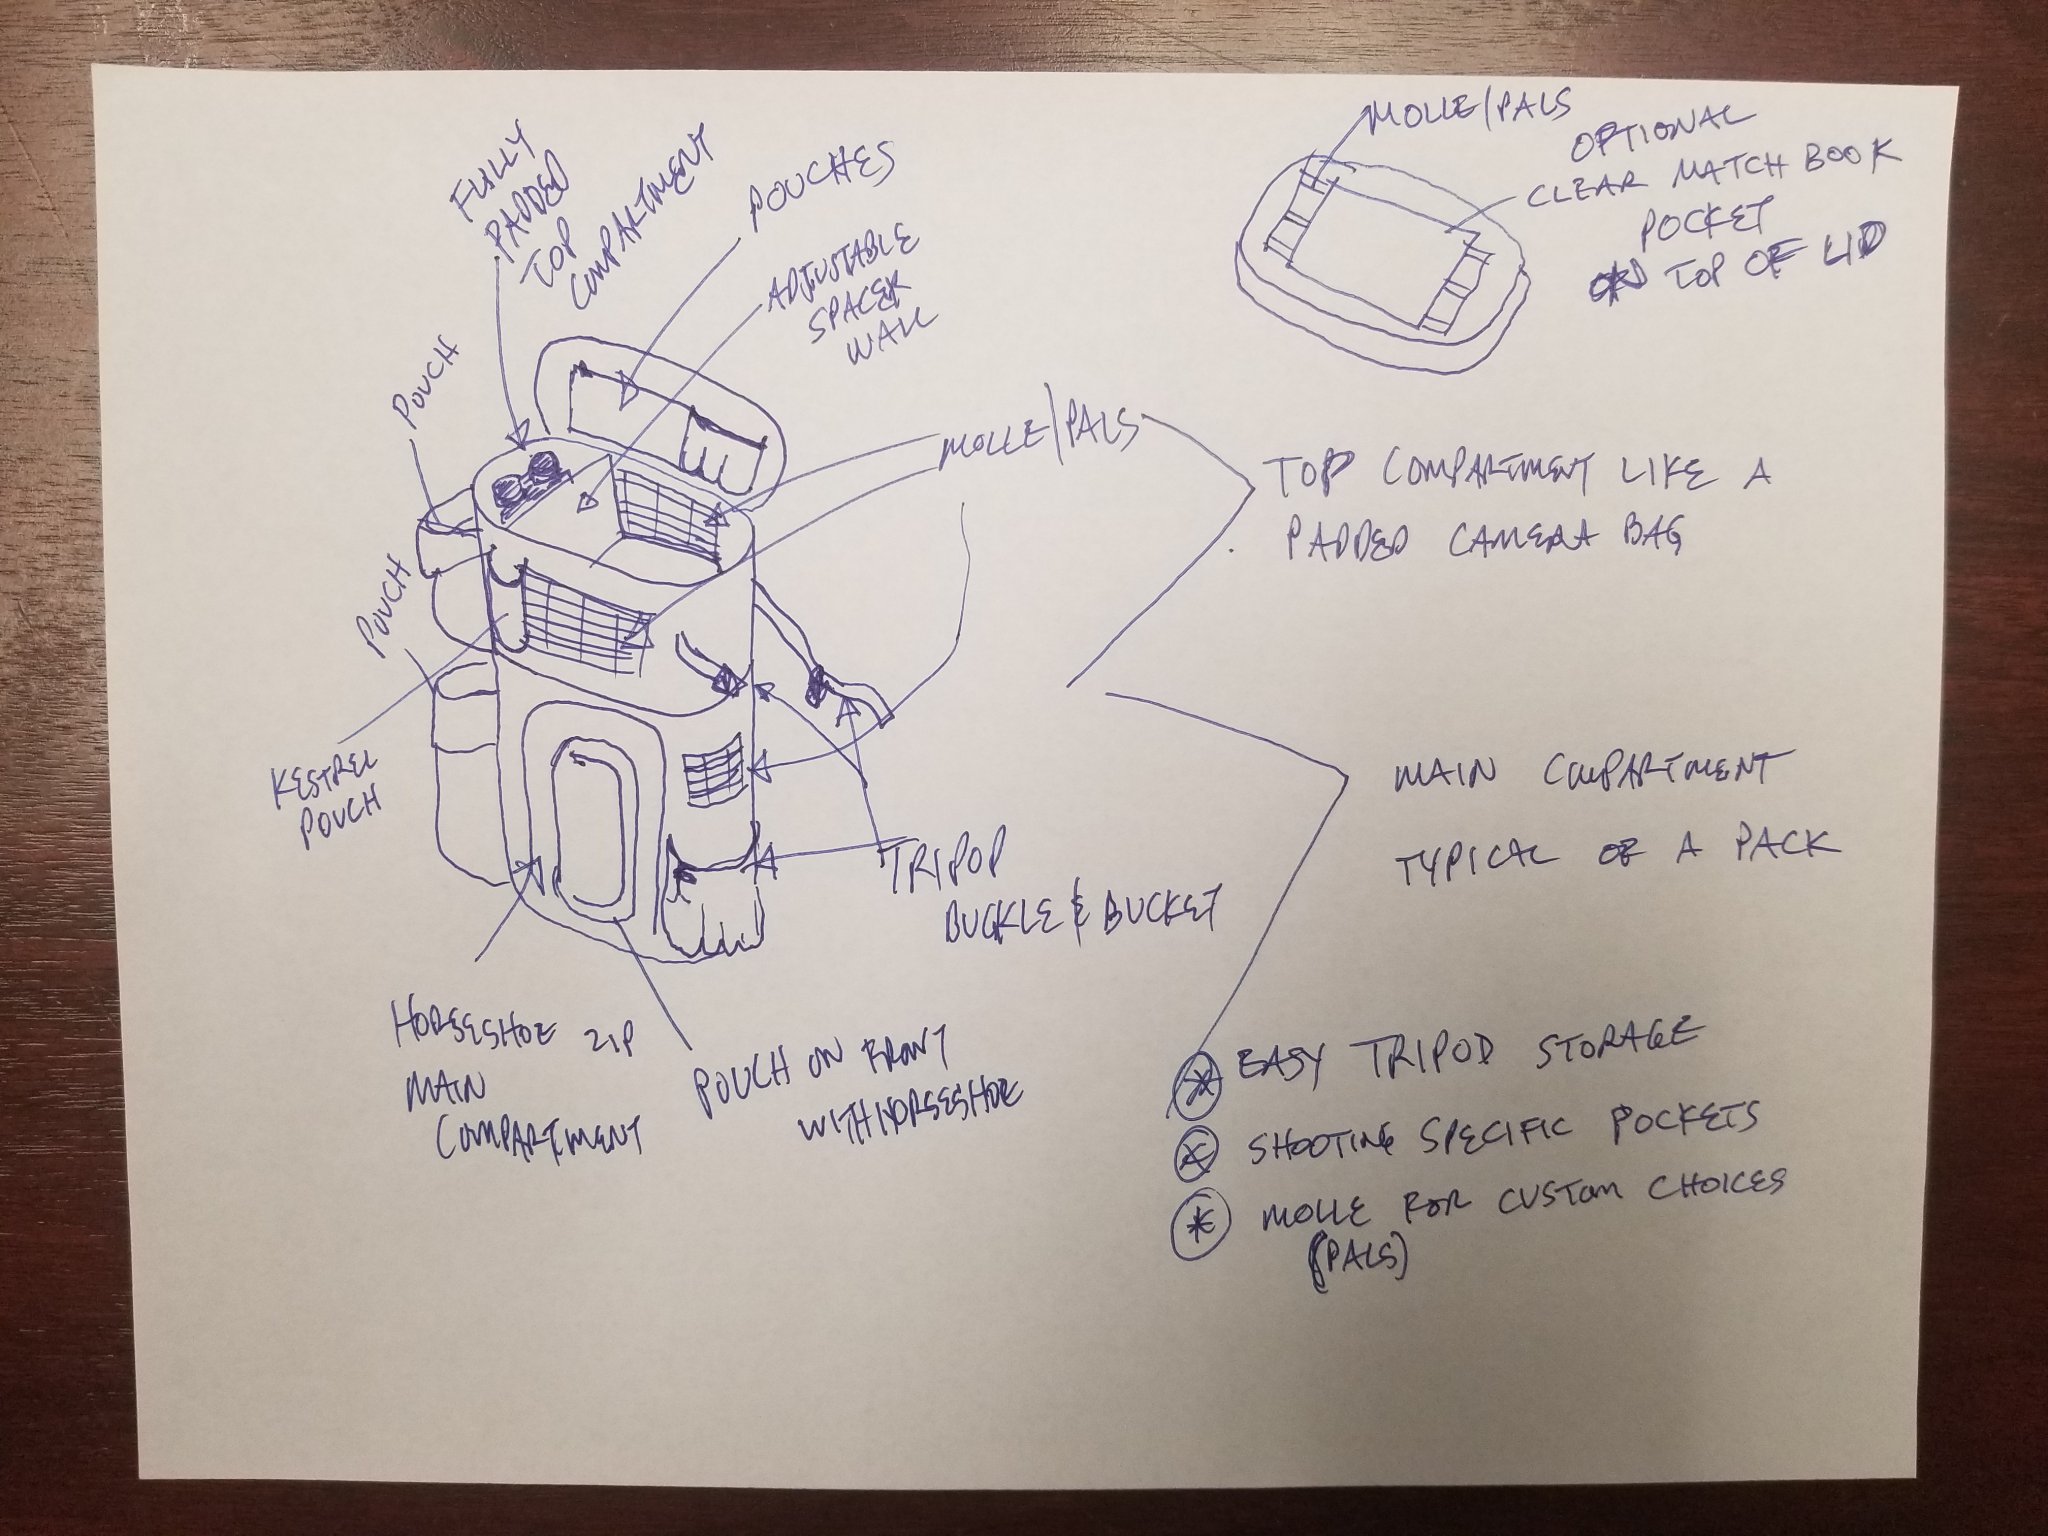 FULLY
PADDED
TOP
COMPARTMENT
POUCHES
ADJUSTABLE
SPACER
WALL
POUCH
POUCH
KESTREL
POUCH
MOLLE/PALS
MOLLE/PALS
OPTIONAL
CLEAR MATCH BOOK
POCKET
ON TOP OF LID
TOP COMPARTMENT LIKE A
PADDED CAMERA BAG
MAIN COMPARTMENT
TYPICAL OF A PACK
TRIPOD
BUCKLE & BUCKET
HORSESHOE ZIP
MAIN
COMPARTMENT
POUCH ON FRONT
WITH HORSESHOE
* EASY TRIPOD STORAGE
* SHOOTING SPECIFIC POCKETS
* MOLLE FOR CUSTOM CHOICES
(PALS)